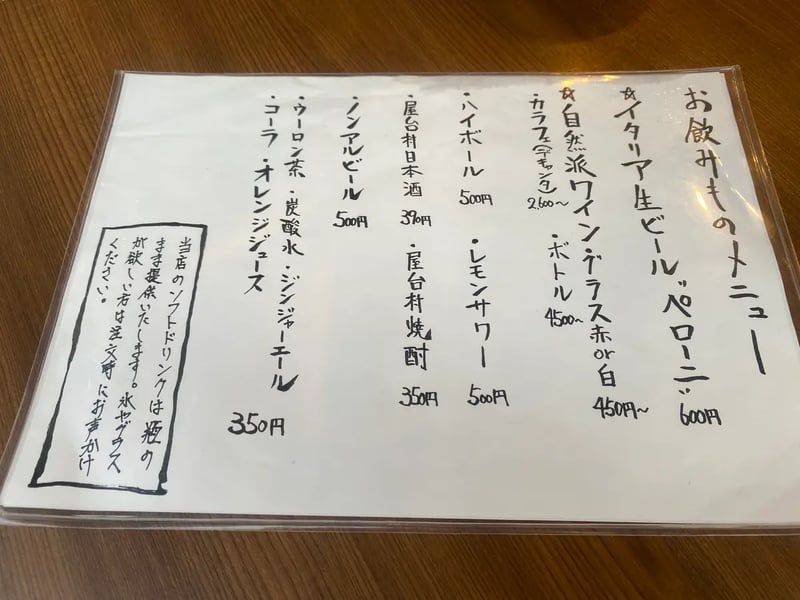 お飲みものメニュー
☆イタリア生ビール"ペローニ" 600円
☆自然派ワイン・グラス赤or白 450円~
カラフェ(デキャンタ) 2,600~ ・ボトル 4500~
・ハイボール 500円 ・レモンサワー 500円
・屋台村日本酒 390円 ・屋台村焼酎 350円
・ノンアルビール 500円
・ウーロン茶 ・炭酸水 ・ジンジャーエール
・コーラ ・オレンジジュース 350円
当店のソフトドリンクは瓶の
まま提供いたします。氷やグラス
が欲しい方は注文時にお声かけ
ください。